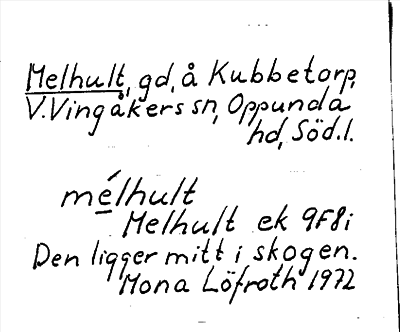 Melhult, gd, å Kubbetorp,
V. Vingåkers sn, Oppunda
hd, Söd.l.
mélhult
Melhult ek 9F8i
Den ligger mitt i skogen.
Mona Löfroth 1972